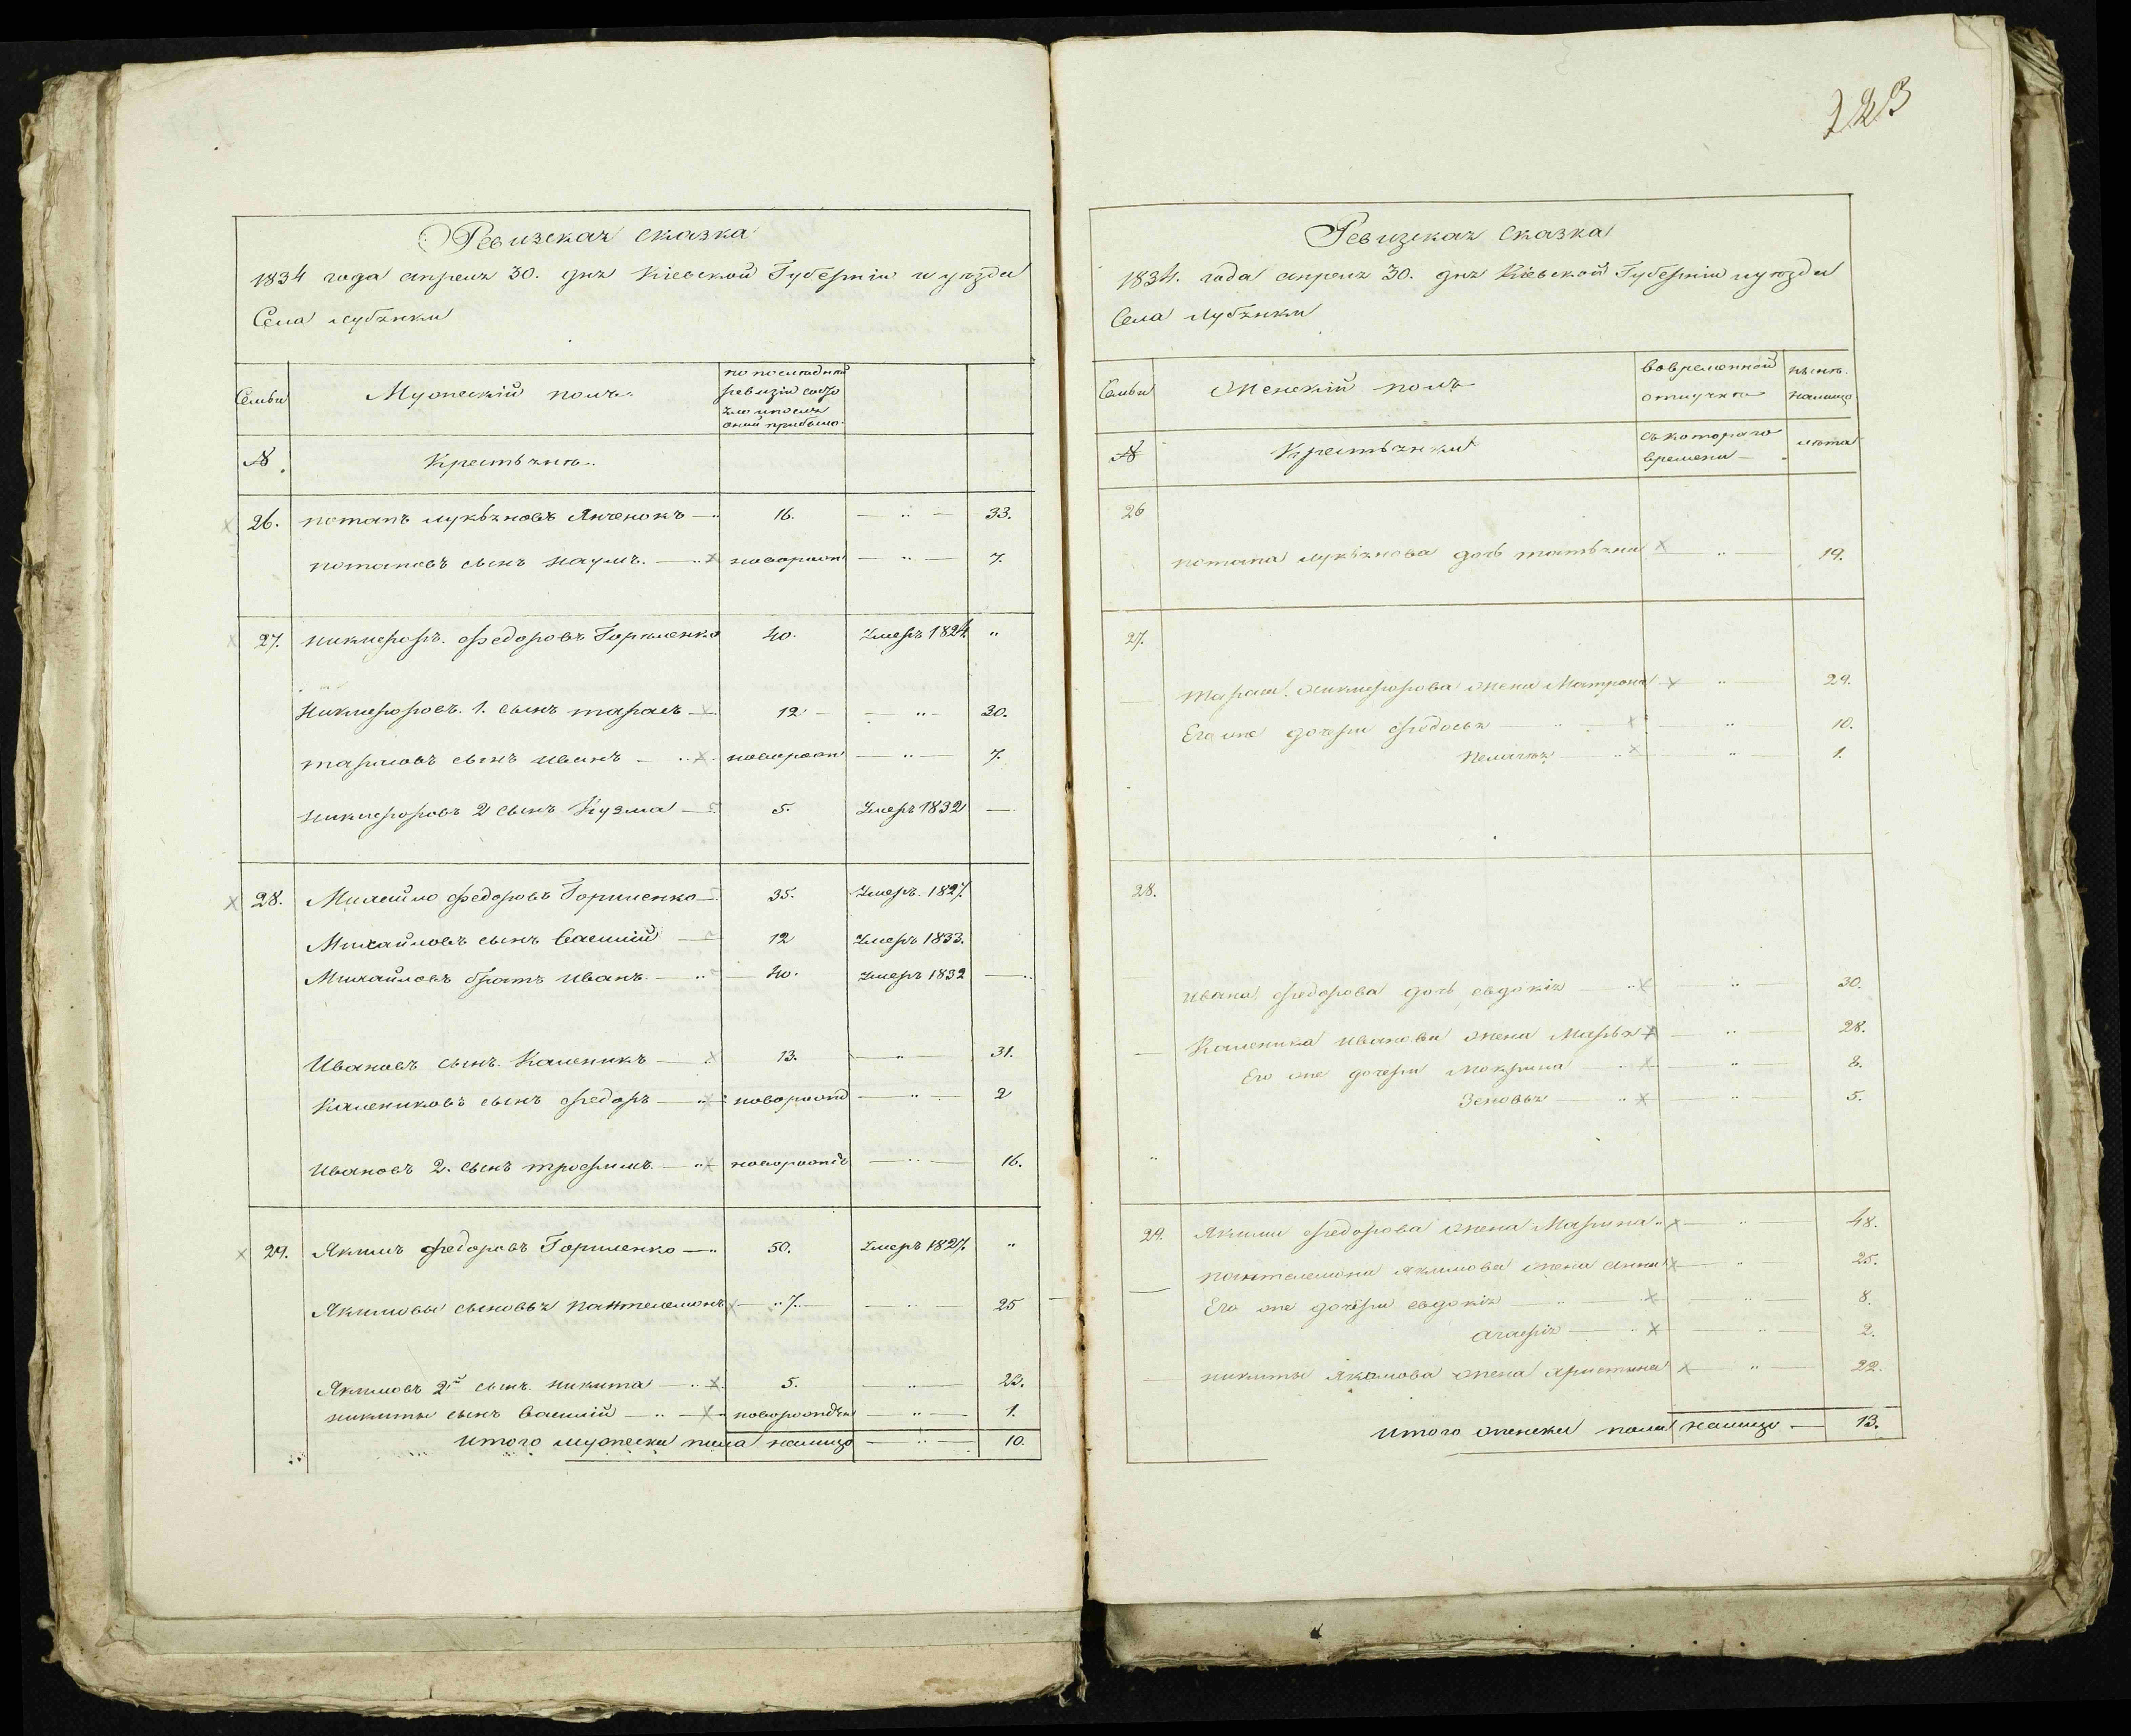 223
Ревизская сказка
1834 года апреля 30. дня Кіевской Губерніи и уѣзда
Села Лубянки
Семьи
Мужескій полъ.
по последней
ревизіи состо
яло и после
оной прибыло
№.
Крестьяне.
26. потапъ лукьяновъ Янченокъ — 16. — „ — 33.
потаповъ сынъ наумъ. — новорожд — „ — 7.
27. никифоръ. федоровъ Горпиенко 40. Умеръ 1824 „
Никифоровъ. 1. сынъ тарасъ — 12 — „ — 20.
тарасовъ сынъ иванъ — новорожд — „ — 7.
никифоровъ 2 сынъ Кузма — 5. Умеръ 1832 —
28. Михайло федоровъ Горпиенко — 35. Умеръ. 1827.
Михайловъ сынъ Василій — 12 Умеръ 1833.
Михайловъ братъ иванъ. — 40. умеръ 1832 —
Ивановъ сынъ. Каленикъ — 13. — „ — 31.
Калениковъ сынъ федоръ — новорожд — „ — 2
Ивановъ 2. сынъ трофимъ. — новорожде — „ — 16.
29. Якимъ федоровъ Горпиенко — 50. Умеръ 1827. „
Якимовы сыновья пантелемонъ — 7. — „ — 25
Якимовъ 2й сынъ. никита — 5. — „ — 23.
никиты сынъ Василій — новорожден — „ — 1.
Итого мужеска пола налицо — „ — 10.
Ревизская сказка
1834. года апреля 30. дня Кіевской Губерніи и уѣзда
Села Лубянки
Семьи
Женскій полъ
вовременной
отлучке
ныне.
налицо
№
Крестьянки
съ котораго
времени —
лета
26
потапа лукьянова дочь татьяна „ 19.
27.
тараса. никифорова жена Матрона — „ — 29.
Его же дочери федосья — „ — 10.
пелагея — „ — 1.
28.
ивана федорова дочь евдокія — „ — 30.
Каленика иванова жена Марья — „ — 28.
Его же дочери Мокрина — „ 8.
Зеновья — „ — 5.
29. Якима федорова жена Марина — „ — 48.
пантелемона якимова жена анна — „ — 25.
Его же дочери евдокія — „ — 8.
агафія — „ — 2.
никиты Якимова жена христина „ — 22.
Итого женска пола налицо — 13.